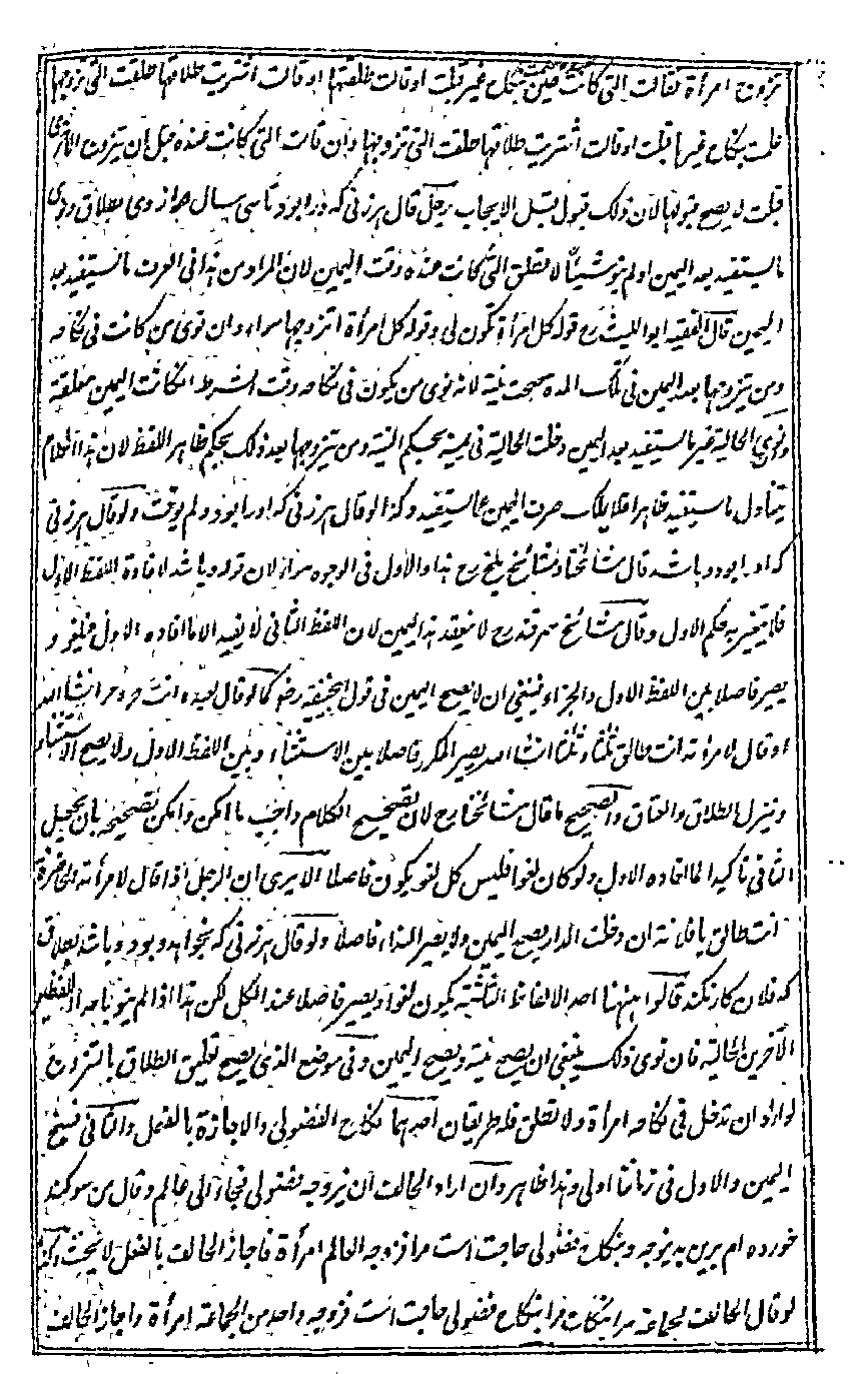 تزوج امرأة فقالت التي كانت حين بنكاح غير قبلت او قالت طلقتها او قالت اشتريت طلاقها طلقت التي تزوجها
علمت بنكاح غيرها قبلت او قالت اشتريت طلاقها طلقت التي تزوجها وان قالت التي كانت عنده قبل ان يتزوج الاخرى
قبلت لا يصح قبولها لان ذلك قبول قبل الايجاب رجل قال هر زنى كه ورا بود تا سى سال جواز وى بطلاق ونوى
ما يستفيد بعد اليمين او لم ينو شيئا لا تطلق التي كانت عنده وقت اليمين لان المراد من هذا فى العرف ما يستفيد بعد
اليمين قال الفقيه ابو الليث رح قوله كل امرأة تكون لى وقوله كل امرأة اتزوجها سواء وان نوى من كانت فى نكاحه
ومن يتزوجها بعد اليمين فى تلك المدة صحت نيته لانه نوى من يكون فى نكاحه وقت الشرط فكانت اليمين معلقة
ونوى الحالية غير ما يستفيد بعد اليمين دخلت الحالية فى يمينه بحكم النية ومن يتزوجها بعد ذلك بحكم ظاهر اللفظ لان هذا الكلام
يتناول ما يستفيد ظاهرا فلا يملك صرف اليمين عما يستفيد وكذا لو قال هر زنى كه او را بود ولم يوقت ولو قال هر زنى
كه او را بود وباشد قال مشائخنا ومشائخ بلخ رح هذا والاول فى الوجوه سواء لان قوله وباشد لافادة اللفظ الاول
فلا يتغير به حكم الاول وقال مشائخ سمرقند رح لا ينعقد هذا اليمين لان اللفظ الثانى لا يفيد الا ما افاده الاول فيلغو و
يصير فاصلا بين اللفظ الاول والجزاء فينبغى ان لا يصح اليمين فى قول ابى حنيفة رض كما لو قال لعبده انت حر وحر انشاء الله
او قال لامرأته انت طالق ثلثا وثلثا انشاء الله يصير المكرر فاصلا بين الاستثناء وبين اللفظ الاول ولا يصح الاستثناء
وينزل الطلاق والعتاق والصحيح ما قال مشائخنا رح لان تصحيح الكلام واجب ما امكن وامكن تصحيحه بان يجعل
الثانى تاكيدا لما افاده الاول ولو كان لغوا فليس كل لغو يكون فاصلا الا يرى ان الرجل اذا قال لامرأته الحاضرة
انت طالق يا فلانة ان دخلت الدار يصح اليمين ولا يصير النداء فاصلا ولو قال هر زنى كه بخواهد وبود وباشد بطلاق
كه فلان كار نكند قالوا ههنا احد الالفاظ الثلثة يكون لغوا ويصير فاصلا عند الكل لكن هذا اذا لم ينو باحد اللفظين
الآخرين الحالية فان نوى ذلك ينبغى ان يصح نيته ويصح اليمين وفى موضع الذى يصح تعليق الطلاق بالتزوج
لو اراد ان تدخل فى نكاحه امرأة ولا تطلق فله طريقان احدهما نكاح الفضولى والاجازة بالفعل والثانى فسخ
اليمين والاول فى زماننا اولى وهذا ظاهر وان اراد الحالف ان يزوجه فضولى فجاء الى عالم وقال من سوكند
خورده ام برين به يوجه وبنكاح فضولى حاجت است مرا فزوجه العالم امرأة فاجاز الحالف بالفعل لا يحنث وكذا
لو قال الحالف لجماعة مرا بنكاح فضولى حاجت است فزوجه واحد من الجماعة امرأة واجاز الحالف